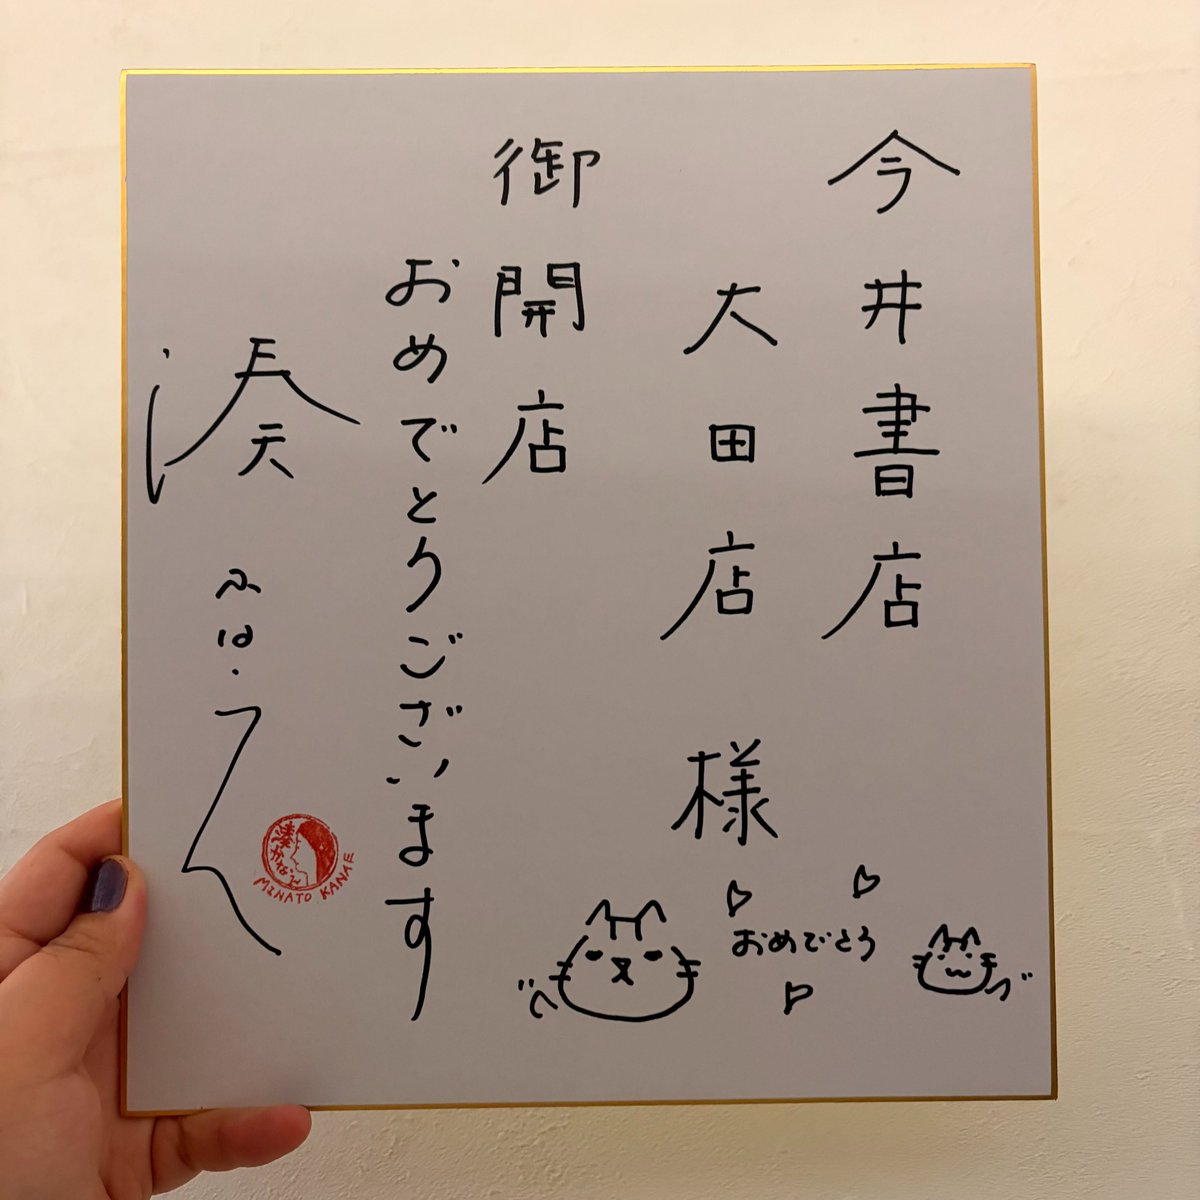 今井書店
大田店 様
御開店
おめでとうございます
湊 かなえ
湊かなえ
MINATO KANAE
おめでとう